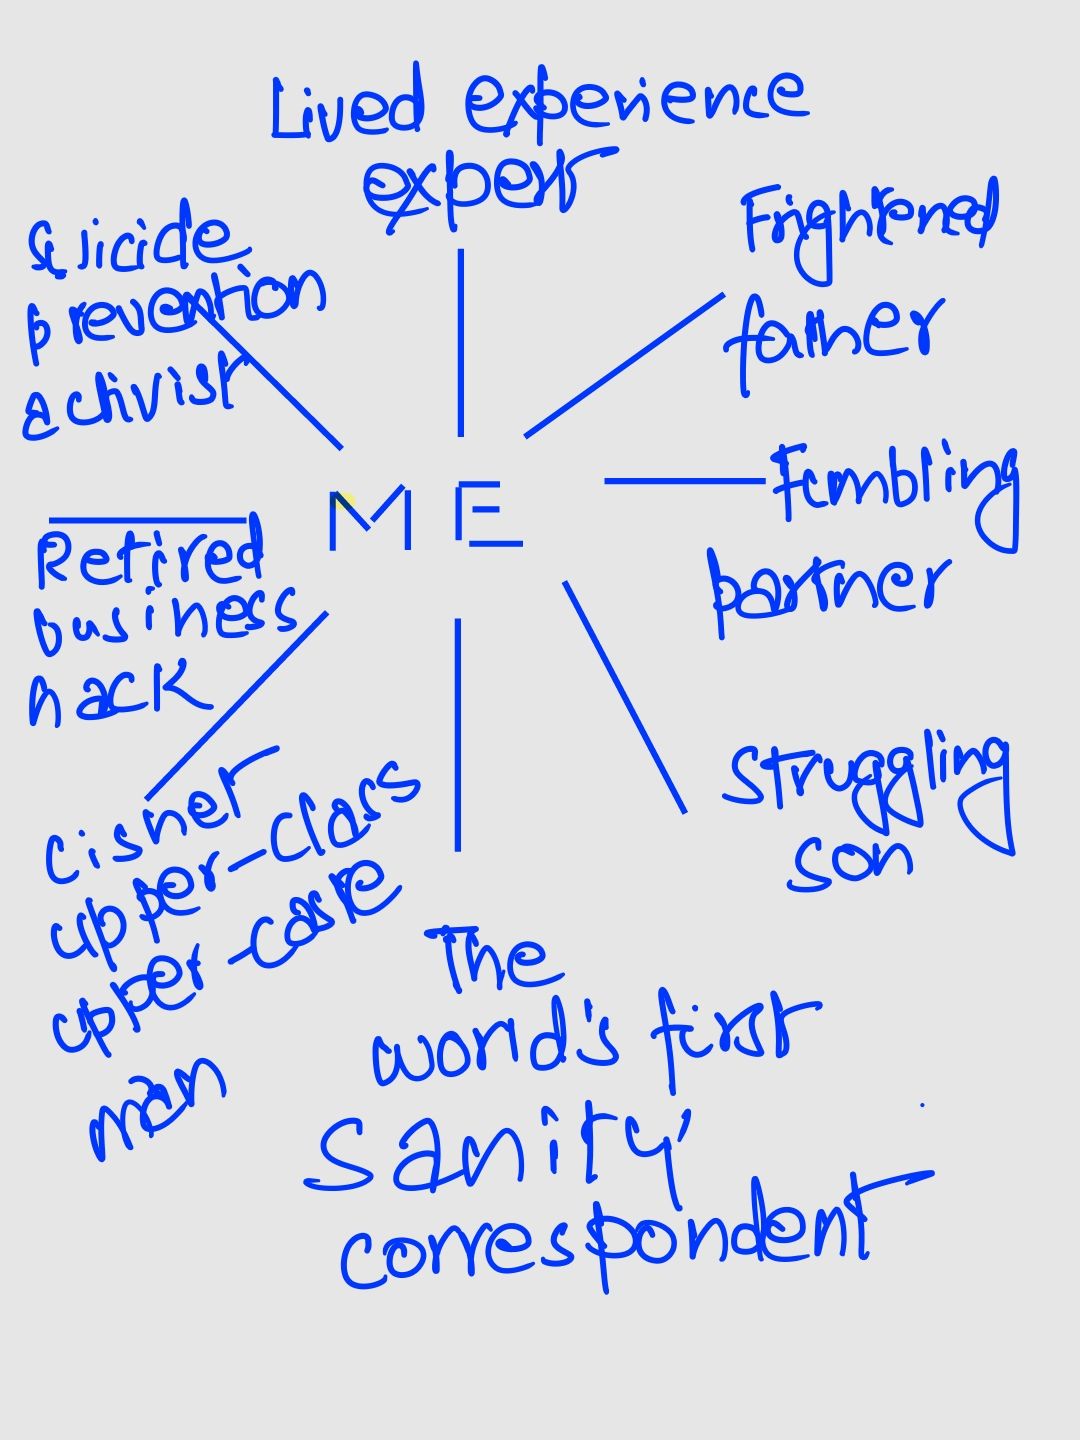 Lived experience
expert
Suicide
prevention
activist
Frightened
father
ME
Fumbling
partner
Retired
business
hack
Struggling
son
Cishet
upper-class
upper-caste
man
The
world's first
Sanity
correspondent